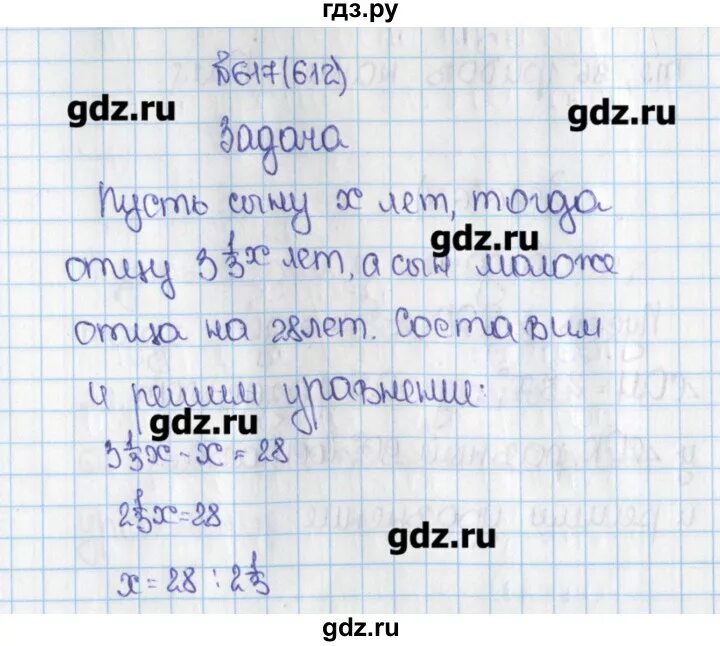 гдз.ру
№617(612)
gdz.ru
gdz.ru
Задача
Пусть сыну x лет, тогда
gdz.ru
отцу 3 1/3 x лет, а сын моложе
отца на 28 лет. Составим
и решим уравнение:
gdz.ru
3 1/3 x - x = 28
2 1/3 x = 28
gdz.ru
x = 28 : 2 1/3
gdz.ru